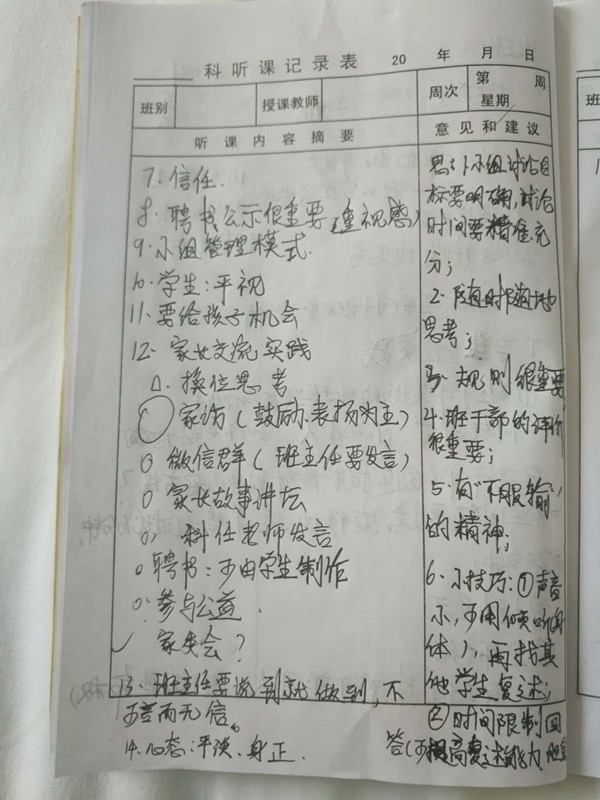 科听课记录表 20 年 月 日
班别 授课教师 周次 第 周 星期
听课内容摘要
7. 信任.
8. 聘书公示很重要(重视感)
9. 小组管理模式.
10. 学生:平视
11. 要给孩子机会
12. 家长交流实践
△. 换位思考
家访(鼓励.表扬为主)
微信群(班主任要发言)
家长故事讲坛
科任老师发言
聘书:可由学生制作
参与公益.
✓ 家委会?
13. 班主任要说到就做到,不
可言而无信。
14. 心态:平淡、身正.
意见和建议
思:1.小组讨论目
标要明确,讨论
时间要精准充
分;
2. 随时随地
思考;
3. 规则很重要
4. 班干部的评价
很重要;
5. 有“不服输”
的精神;
6. 小技巧:①声音
小,可用倾听身
体),再找其
他学生复述;
②时间限制回
答(可提高复述能力
班